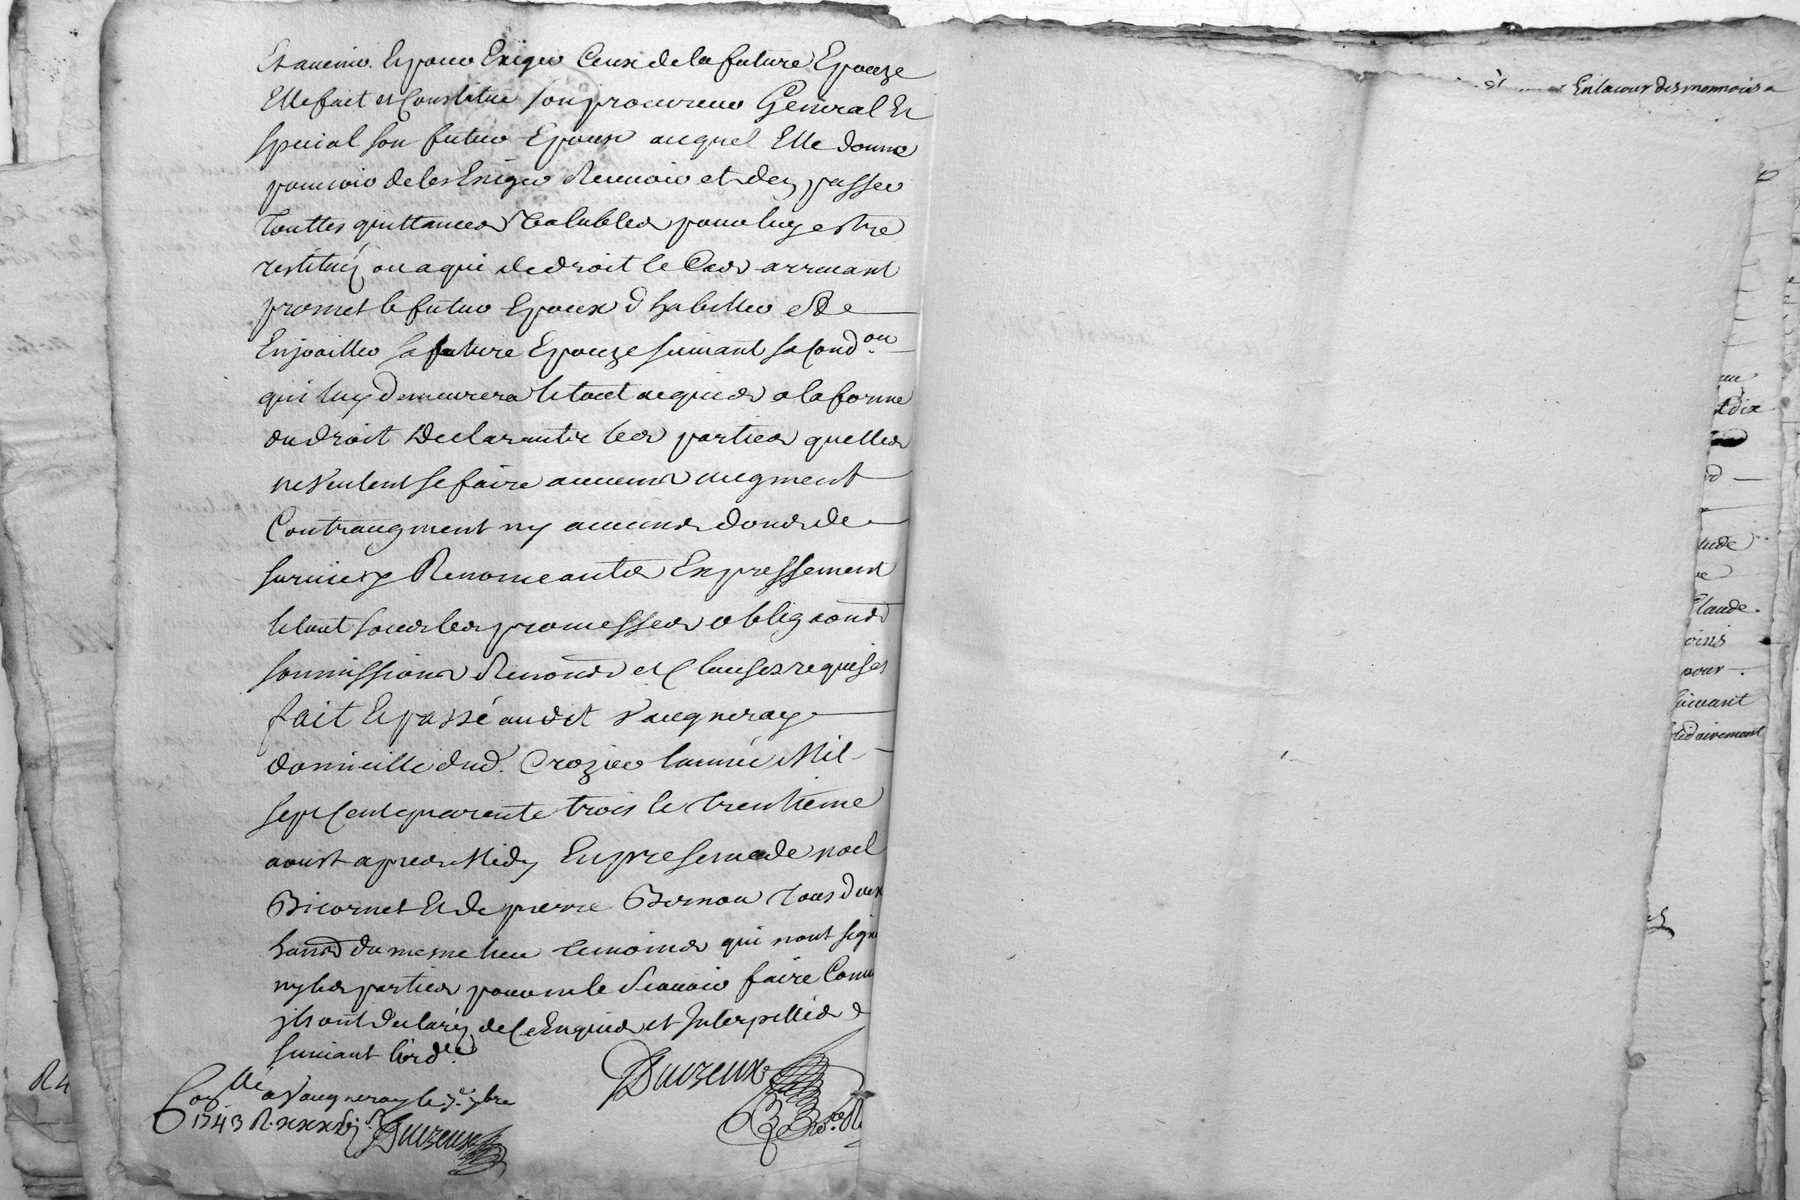 Et avenir. Et pour Exiger Ceux de la future Epouze
Elle fait et Constitue son procureur General Et
special son futur Epoux auquel Elle donne
pouvoir de les Exiger Recevoir et den passer
touttes quittances Valables pour luy estre
restituéz ou a qui de droit le Cas arrivant
promet le futur Epoux d'habiller et de
Enjoailler sa future Epouze suivant sa Cond.on
qui luy demeurera le tout acquis a la forme
du droit declarants les parties quelles
ne veulent se faire aucuns augment
Contraugment ny aucuns dons de
survie y Renonceants Expressement
le tout sous les promesses obligaons
soumissions Renons et Clauses requises
fait Et passé audit Vaugneray
domicille dud. Crozier l'année Mil
sept Cent quarente trois le trentieme
aoust apres Midy En presence de noel
Bicornet Et de pierre Bernou tous deux
du mesme lieu temoins qui n'ont sign
ny les parties pour ne le Scavoir faire Comm
ils ont declaréz de Ce Enquis et Interpellés
suivant l'ord.ce
Duvzeux
Con.llé a Vaugneray le 7.e 7bre
1743 R. xxxvj s.
Duvzeux
En la cour des monnoies
dix
Claude.
pour
suivant
lidairement